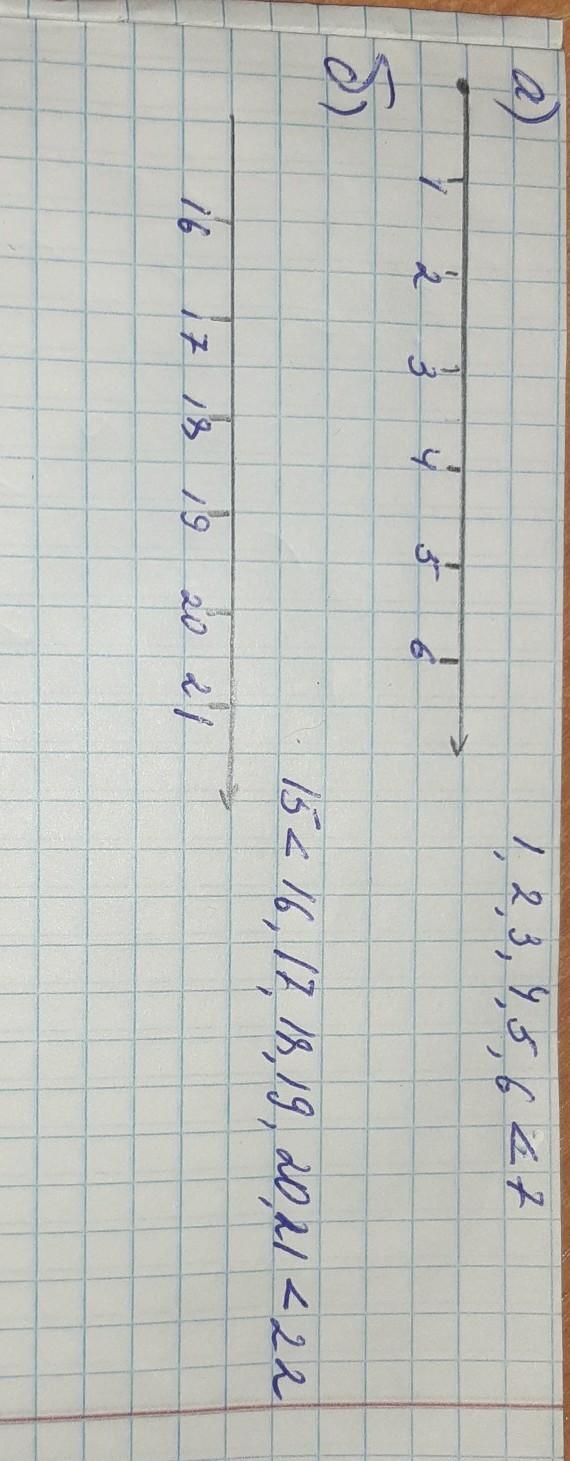 а)
1 2 3 4 5 6
1, 2, 3, 4, 5, 6 < 7
б)
15 < 16, 17, 18, 19, 20, 21 < 22
16 17 18 19 20 21